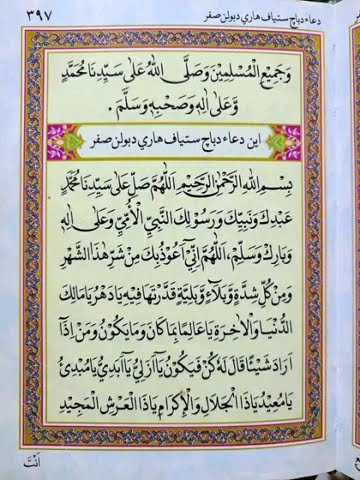 دعاء دباچ ستياف هاري دبولن صفر
٣٩٧
وَجَمِيْعِ الْمُسْلِمِيْنَ وَصَلَّى اللهُ عَلَى سَيِّدِنَا مُحَمَّدٍ
وَّعَلَى اٰلِهٖ وَصَحْبِهٖ وَسَلَّمَ .
اين دعاء دباچ ستياف هاري دبولن صفر
بِسْمِ اللهِ الرَّحْمٰنِ الرَّحِيْمِ اَللّٰهُمَّ صَلِّ عَلَى سَيِّدِنَا مُحَمَّدٍ
عَبْدِكَ وَنَبِيِّكَ وَرَسُوْلِكَ النَّبِيِّ الْاُمِّيِّ وَعَلَى اٰلِهٖ
وَبَارِكْ وَسَلِّمْ، اَللّٰهُمَّ اِنِّيْ اَعُوْذُبِكَ مِنْ شَرِّ هٰذَا الشَّهْرِ
وَمِنْ كُلِّ شِدَّةٍ وَّبَلَاءٍ وَّبَلِيَّةٍ قَدَّرْتَهَا فِيْهِ يَادَهْرُ يَامَالِكَ
الدُّنْيَا وَالْاٰخِرَةِ يَاعَالِمًا بِمَا كَانَ وَمَايَكُوْنُ وَمَنْ اِذَا
اَرَادَ شَيْئًا قَالَ لَهُ كُنْ فَيَكُوْنُ يَآاَزَلِيُّ يَآاَبَدِيُّ يَامُبْدِئُ
يَامُعِيْدُ يَاذَا الْجَلَالِ وَالْاِكْرَامِ يَاذَا الْعَرْشِ الْمَجِيْدِ
اَنْتَ